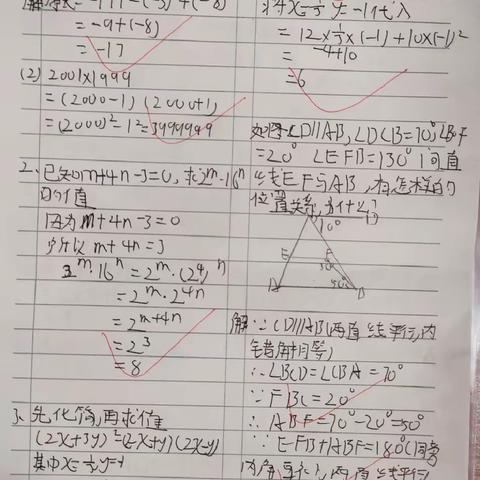 = -9+(-8)
= -17
(2) 2001×1999
= (2000-1) (2000+1)
= (2000)²-1²=3999999
2、已知m+4n-3=0，求2^m·16^n
的值
因为m+4n-3=0
所以m+4n=3
2^m·16^n=2^m·(2^4)^n
=2^m·2^4n
=2^m+4n
=2^3
=8
3、先化简，再求值
(2x+3y)²-(2x+y)(2x-y)
其中x=1/3 y=-1
将x=1/3 y=-1代入
=12×1/3×(-1)+10×(-1)²
=-4+10
=6
如图CD∥AB，∠DCB=70°∠CBF
=20° ∠EFB=130°问直
线EF与AB，有怎样的
位置关系，为什么？
70°
E F
解∵CD∥AB(两直线平行，内
错角相等)
∴∠BCD=∠CBA=70°
∵FBC=20°
∴ABF=70°-20°=50°
∵EFB+ABF=180°(同旁
内角互补，两直线平行